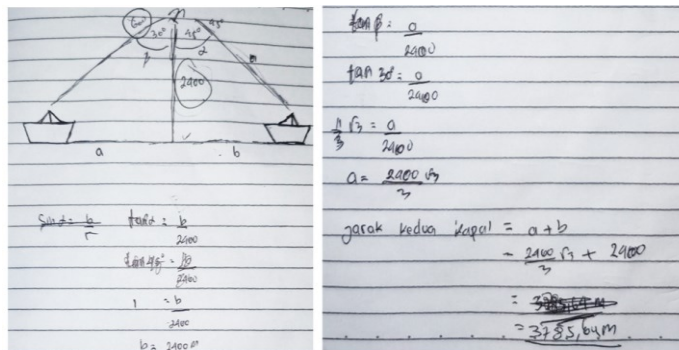 60° 30° 45° 45°
β α
2400
a b
sin α = b/r
tan α = b/2400
tan 45° = b/2400
1 = b/2400
b = 2400 m
tan β = a/2400
tan 30° = a/2400
1/3 √3 = a/2400
a = 2400/3 √3
Jarak kedua kapal = a + b
= 2400/3 √3 + 2400
= 3785,64 m